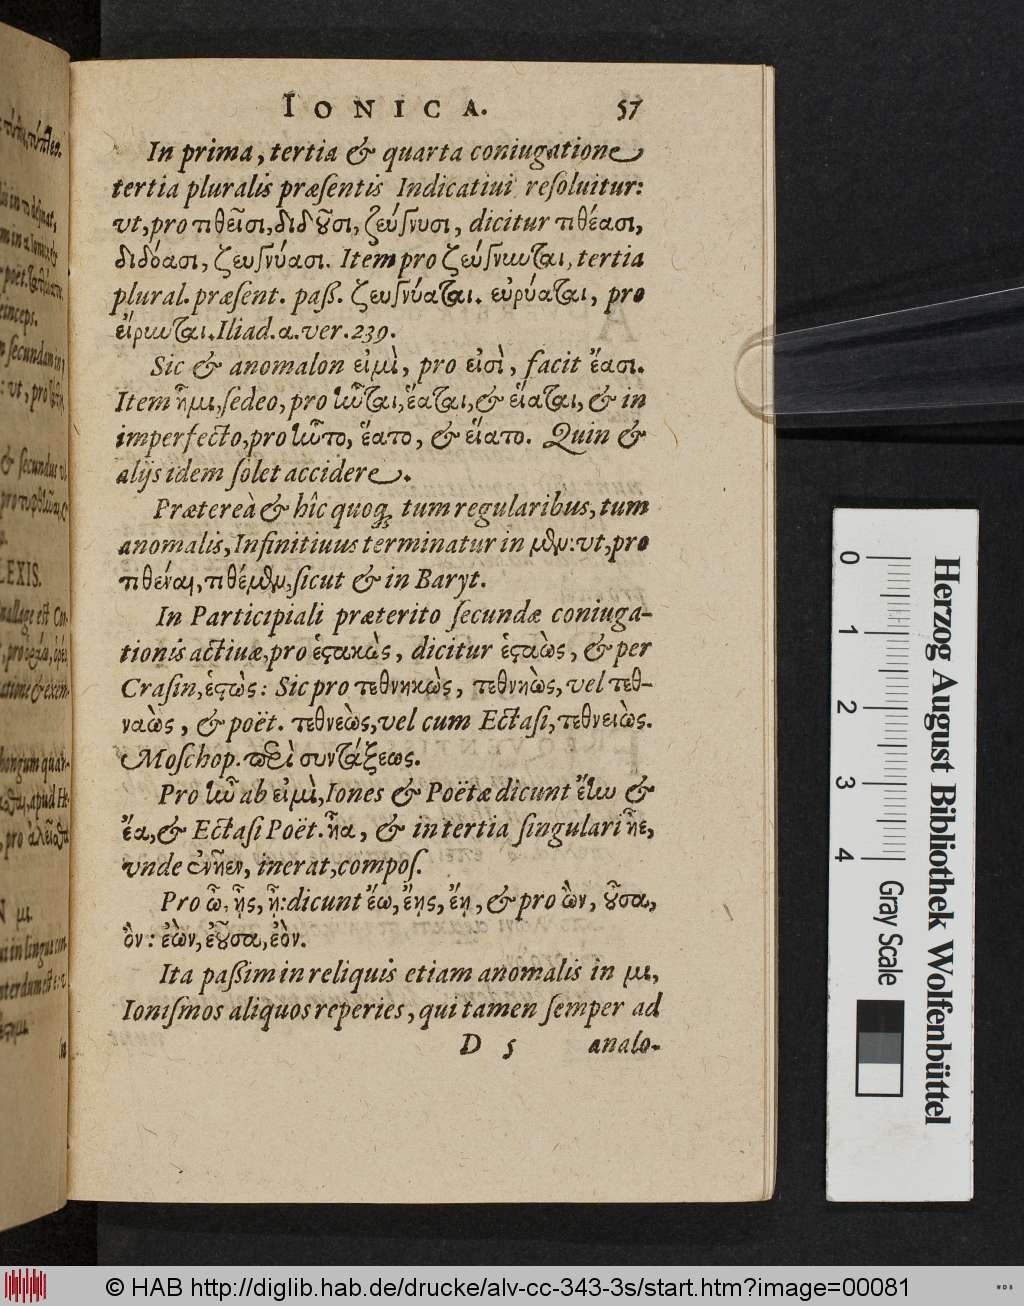 IONICA. 57
In prima, tertia & quarta coniugatione
tertia pluralis præſentis Indicatiui reſoluitur:
vt, pro τιθεῖσι, διδοῦσι, ζεύγνυσι, dicitur τιθέασι,
διδόασι, ζευγνύασι. Item pro ζεύγνυνται, tertia
plural. præſent. paß. ζευγνύαται. εὐρύαται, pro
εἴρυνται. Iliad. α. ver. 239.
Sic & anomalon εἰμὶ, pro εἰσὶ, facit ἔασι.
Item ἧμι, ſedeo, pro ἧνται, ἕαται, & εἵαται, & in
imperfecto, pro ἧντο, ἕατο, & εἵατο. Quin &
alijs idem ſolet accidere.
Prætereà & hîc quoq; tum regularibus, tum
anomalis, Infinitiuus terminatur in μεν: vt, pro
τιθέναι, τιθέμεν, ſicut & in Baryt.
In Participiali præterito ſecundæ coniuga-
tionis actiuæ, pro ἑςακὼς, dicitur ἑςαὼς, & per
Craſin, ἑςὼς: Sic pro τεθνηκὼς, τεθνηὼς, vel τεθ-
ναὼς, & poët. τεθνεὼς, vel cum Ectaſi, τεθνειὼς.
Moſchop. περὶ συντάξεως.
Pro ἦν ab εἰμὶ, Iones & Poëtæ dicunt ἔην &
ἔα, & Ectaſi Poët. ἦα, & in tertia ſingulari ἦε,
vnde ἐνῆεν, inerat, compoſ.
Pro ὦ, ῇς, ῇ: dicunt ἔω, ἔῃς, ἔῃ, & pro ὢν, οὖσα,
ὂν: ἐὼν, ἐοῦσα, ἐὸν.
Ita paßim in reliquis etiam anomalis in μι,
Ioniſmos aliquos reperies, qui tamen ſemper ad
D 5 analo-
0 1 2 3 4
Gray Scale
Herzog August Bibliothek Wolfenbüttel
© HAB http://diglib.hab.de/drucke/alv-cc-343-3s/start.htm?image=00081